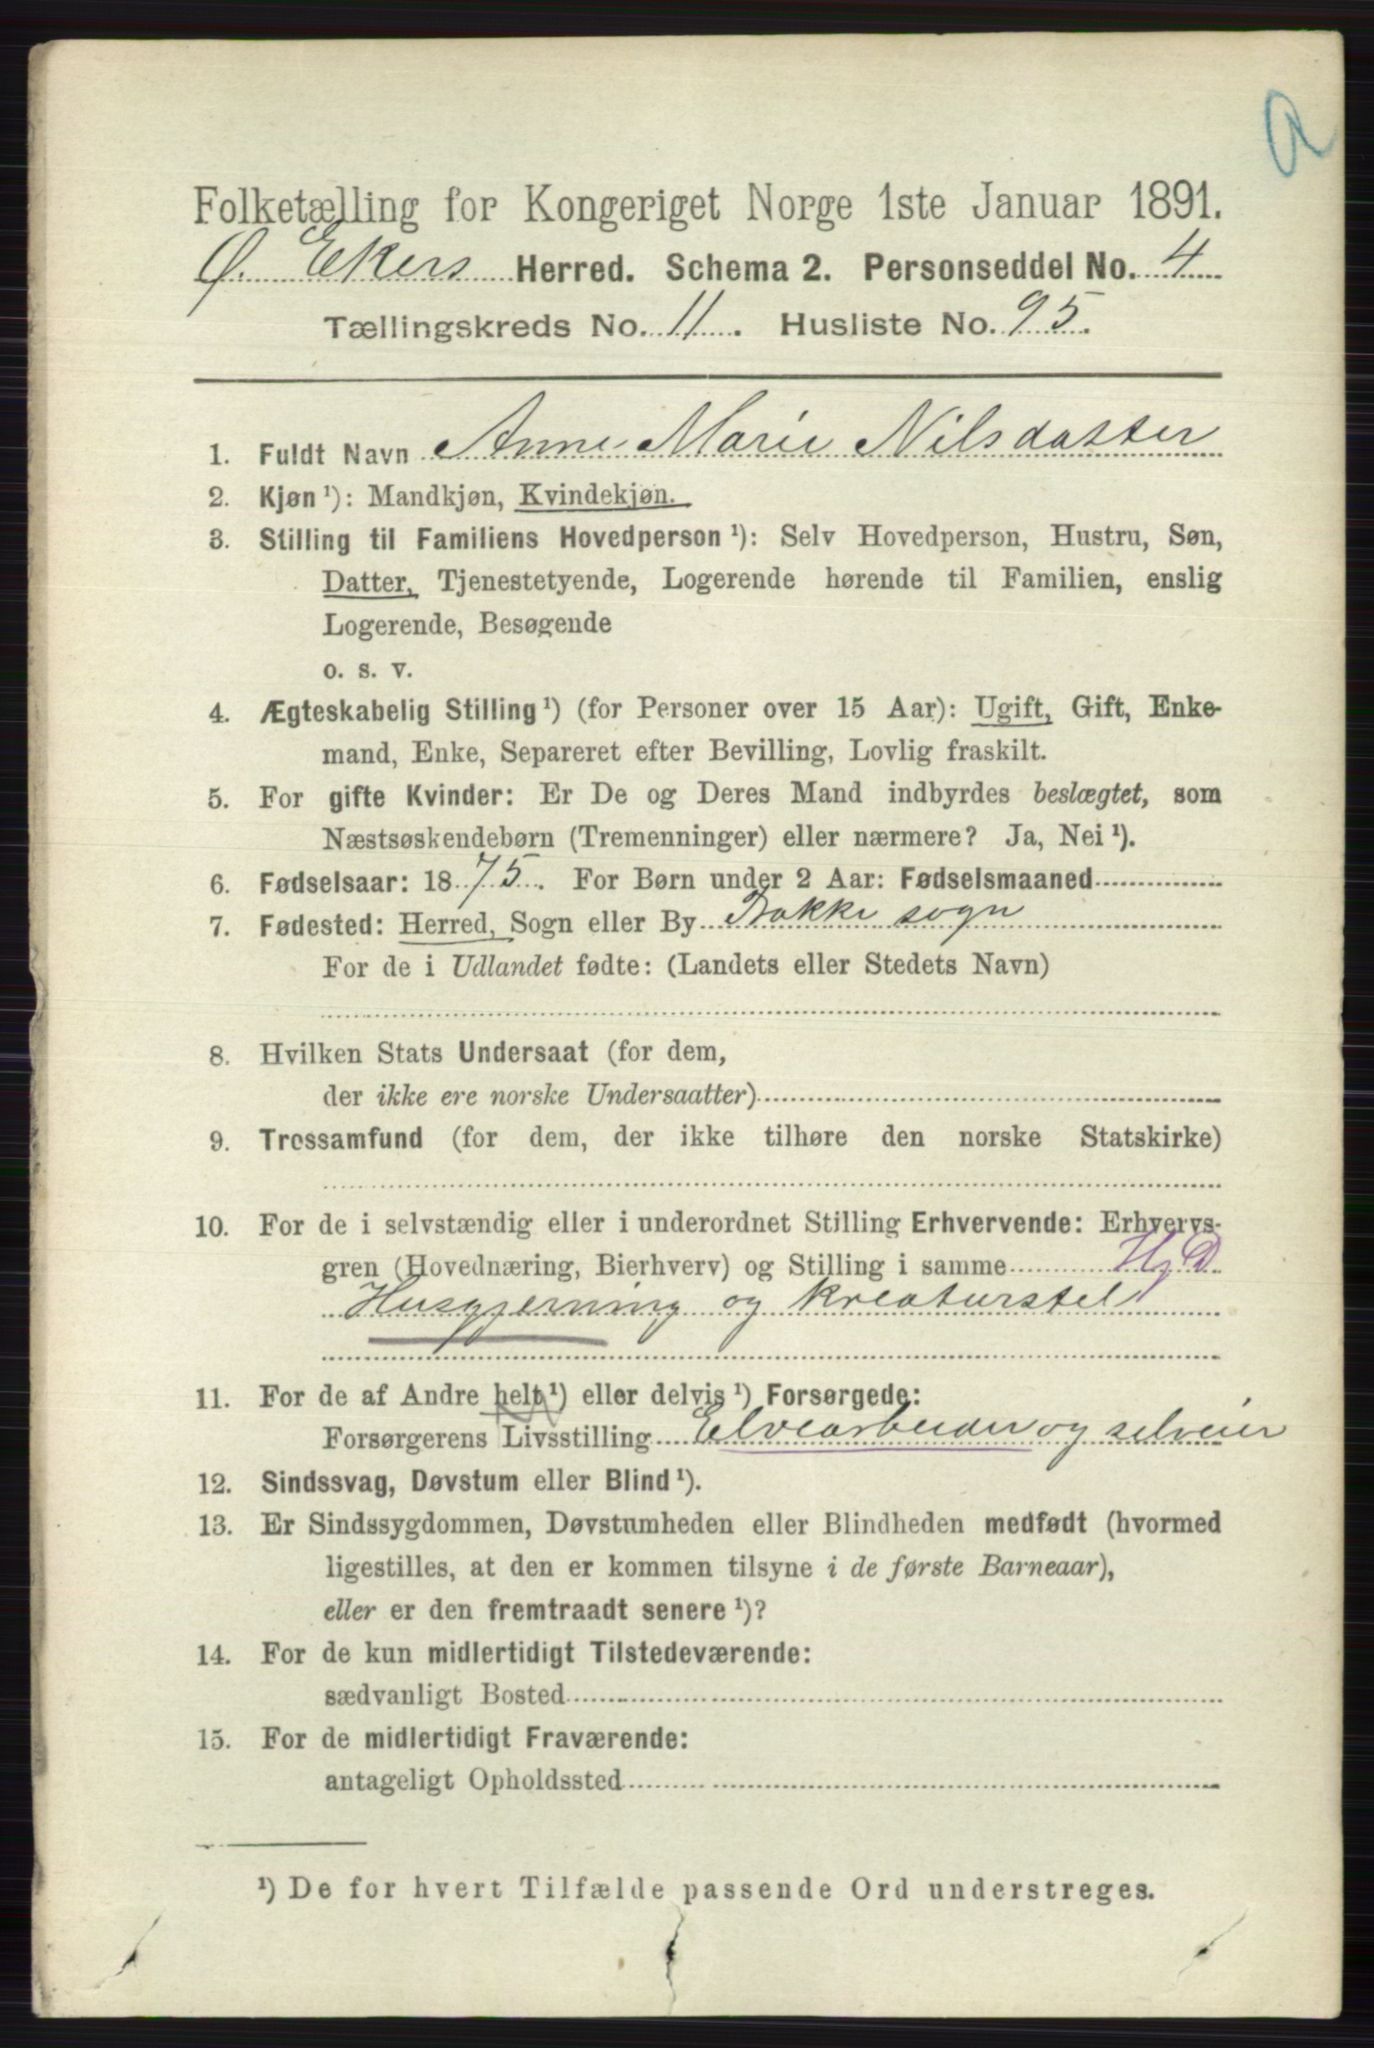 Folketælling for Kongeriget Norge 1ste Januar 1891.
Ø. Ekers Herred. Schema 2. Personseddel No. 4
Tællingskreds No. 11. Husliste No. 95.
1. Fuldt Navn Anne Marie Nilsdatter
2. Kjøn ¹): Mandkjøn, Kvindekjøn.
3. Stilling til Familiens Hovedperson ¹): Selv Hovedperson, Hustru, Søn,
Datter, Tjenestetyende, Logerende hørende til Familien, enslig
Logerende, Besøgende
o. s. v.
4. Ægteskabelig Stilling ¹) (for Personer over 15 Aar): Ugift, Gift, Enke-
mand, Enke, Separeret efter Bevilling, Lovlig fraskilt.
5. For gifte Kvinder: Er De og Deres Mand indbyrdes beslægtet, som
Næstsøskendebørn (Tremenninger) eller nærmere? Ja, Nei ¹).
6. Fødselsaar: 1875. For Børn under 2 Aar: Fødselsmaaned
7. Fødested: Herred, Sogn eller By Bakke sogn
For de i Udlandet fødte: (Landets eller Stedets Navn)
8. Hvilken Stats Undersaat (for dem,
der ikke ere norske Undersaatter)
9. Trossamfund (for dem, der ikke tilhøre den norske Statskirke)
10. For de i selvstændig eller i underordnet Stilling Erhvervende: Erhvervs-
gren (Hovednæring, Bierhverv) og Stilling i samme Hj D
Husgjerning og kreaturstel
11. For de af Andre helt ¹) eller delvis ¹) Forsørgede:
Forsørgerens Livsstilling Elvearbeider og selveier
12. Sindssvag, Døvstum eller Blind ¹).
13. Er Sindssygdommen, Døvstumheden eller Blindheden medfødt (hvormed
ligestilles, at den er kommen tilsyne i de første Barneaar),
eller er den fremtraadt senere ¹)?
14. For de kun midlertidigt Tilstedeværende:
sædvanligt Bosted
15. For de midlertidigt Fraværende:
antageligt Opholdssted
¹) De for hvert Tilfælde passende Ord understreges.